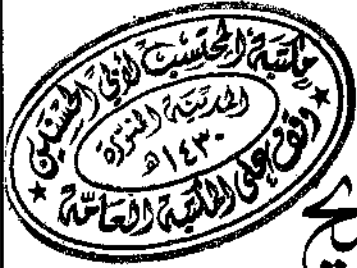 مكتبة المحتسب لأبي الحسنين
المدينة المنورة
١٤٣٠ هـ
وقف على المكتبة العامة